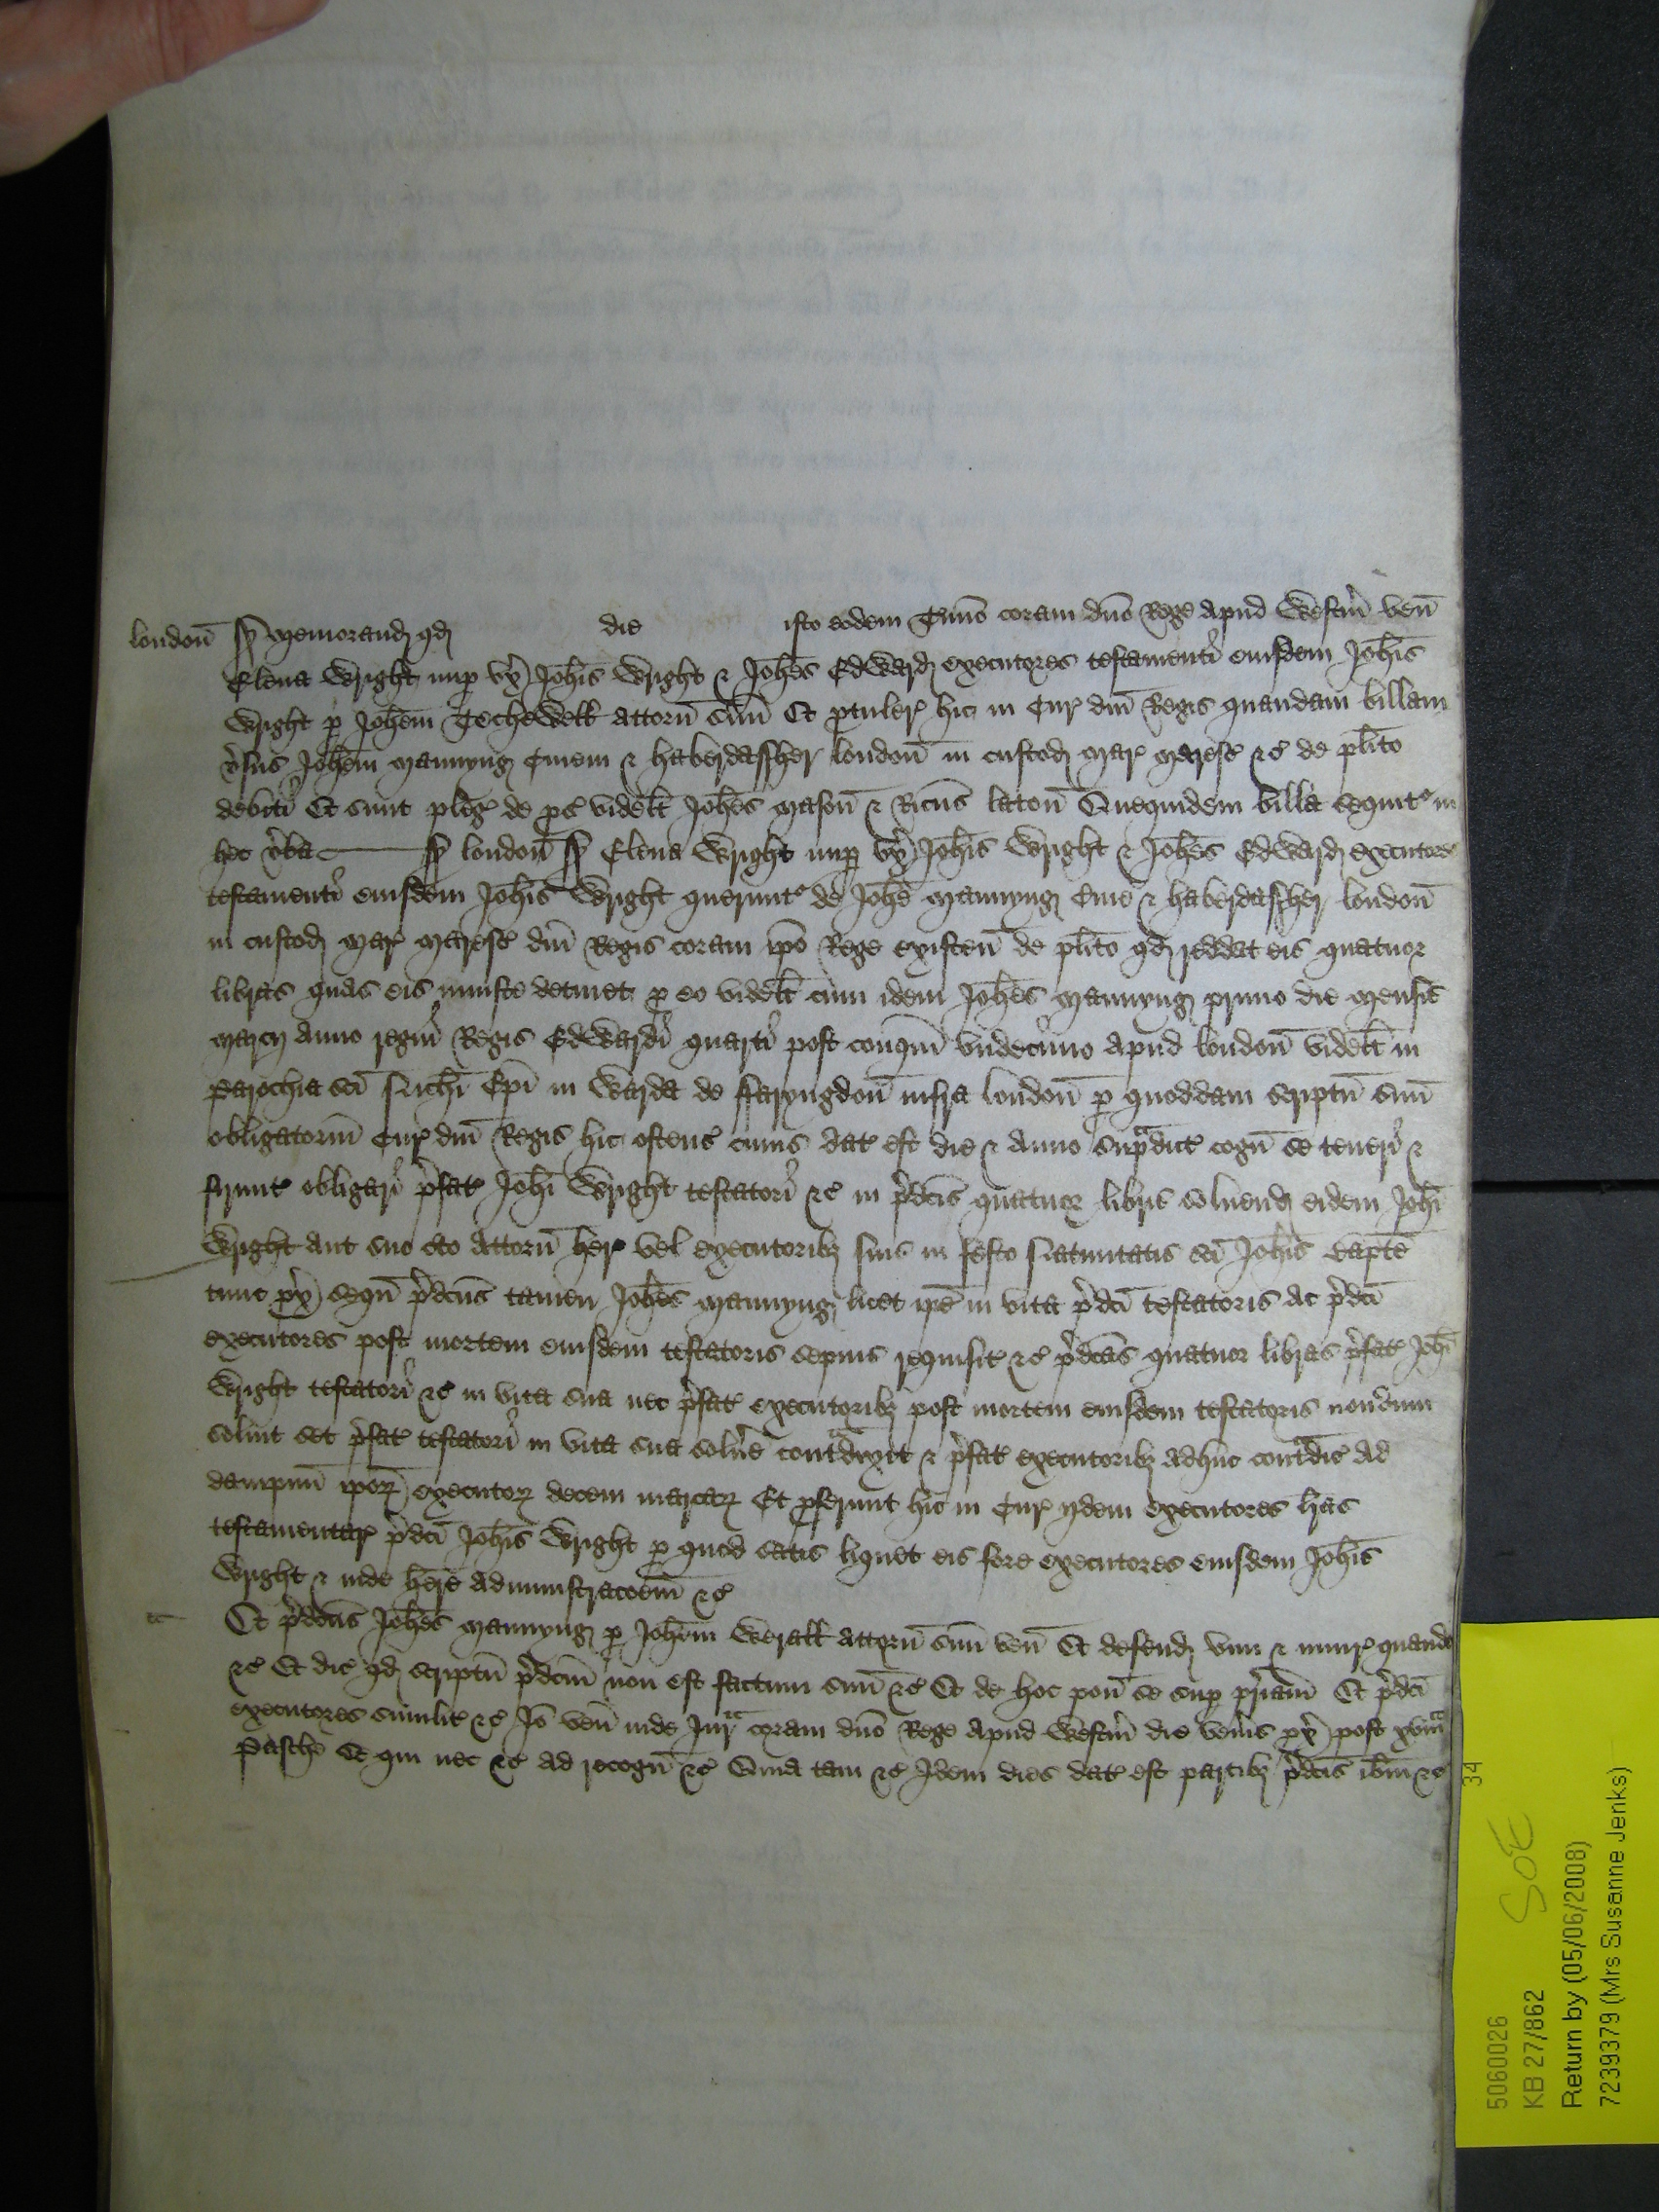 londoñ ss Memorand qd die isto eodem Tmio coram dño Rege apud Westm̃ veñ
Elena Wright nup vx Johis Wright & Johes Edward executores testamenti eiusdem Johis
Wright p Johem Tochewell attorñ suũ Et ptuler hic in Cur dñi Regis quandam billam
vsus Johem Mannyng Ciuem & haberdassher londoñ in custod Mar Maresc &c de plito
debiti Et sunt pleg de ps videlt Johes Mason & Ricus laton Quequidem billa sequit in
hec vba ss londoñ ss Elena Wright nup vx Johis Wright & Johes Edward executores
testamenti eiusdem Johis Wright querunt de Johe Mannyng Ciue & haberdassher londoñ
in custod Mar Maresc dñi Regis coram ipo Rege existeñ de plito qd reddat eis quatuor
libras quas eis iniuste detinet p eo videlt cum idem Johes Mannyng primo die Mensis
Marcij anno regni Regis Edwardi quarti post conqm vndecimo apud londoñ videlt in
Parochia sci Nichi Epi in Warda de ffaryngdoñ infra londoñ p quoddam scriptũ suũ
obligatoriũ Cur dñi Regis hic ostens cuius dat est die & anno supradict cogñ se teneri &
firmit obligari pfat Johi Wright testatori &c in pdcis quatuor libris soluend eidem Johi
Wright aut suo cto attorñ her vel executoribz suis in festo Natiuitatis sci Johis Bapte
tunc px sequ pdcus tamen Johes Mannyng licet ipe in vita pdci testatoris ac pdci
executores post mortem eiusdem testatoris sepius requisit &c pdcas quatuor libras pfat Johi
Wright testatori &c in vita sua nec pfat executoribz post mortem eiusdem testatoris nondum
soluit set pfat testatori in vita sua soluẽ contradixit & pfat executoribz adhuc contradic ad
dampnũ ipor executor decem marcar Et pferunt hic in Cur ijdem executores lras
testamentar pdci Johis Wright p quod satis liquet eis fore executores eiusdem Johis
Wright & inde here administracoem &c
Et pdcus Johes Mannyng p Johem Worall attorñ suũ veñ Et defend vim & iniur quando
&c Et dic qd scriptũ pdcm non est factum suũ &c Et de hoc poñ se sup priam Et pdci
executores similit &c Jo veñ inde Jur coram dño Rege apud Westm̃ die veñis px post xvma
Pasche Et qui nec &c ad recogñ &c Quia tam &c Idem dies dat est partibz pdcis ibm &c
34
5060026 SoE
KB 27/862
Return by (05/06/2008)
7239379 (Mrs Susanne Jenks)